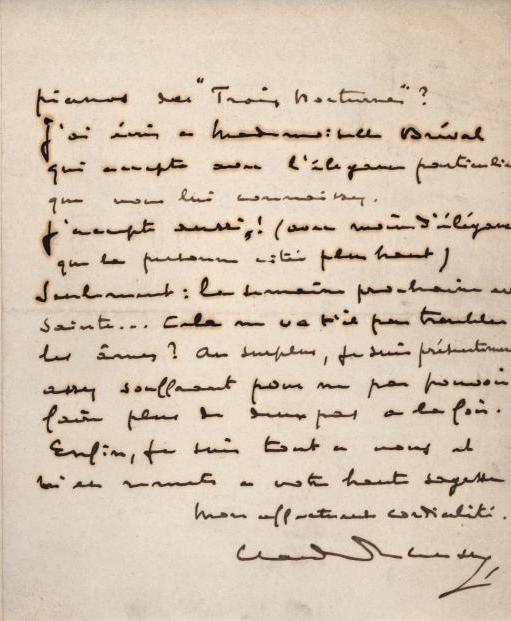 pianos des "Trois Nocturnes"?
J'ai écrit a Mademoiselle Bréval
qui accepte avec l'élégance particulière
que vous lui connaissez.
J'accepte aussi,! (avec moins d'élégance
que la personne citée plus haut)
Seulement: la semaine prochaine est
sainte... Cela ne va t'il pas troubler
les âmes? Au surplus, je suis présentement
assez souffrant pour ne pas pouvoir
faire plus de deux pas a la fois.
Enfin, je suis tout a vous et
m'en remets a votre haute sagesse
Mon affectueuse cordialité.
Claude Debussy